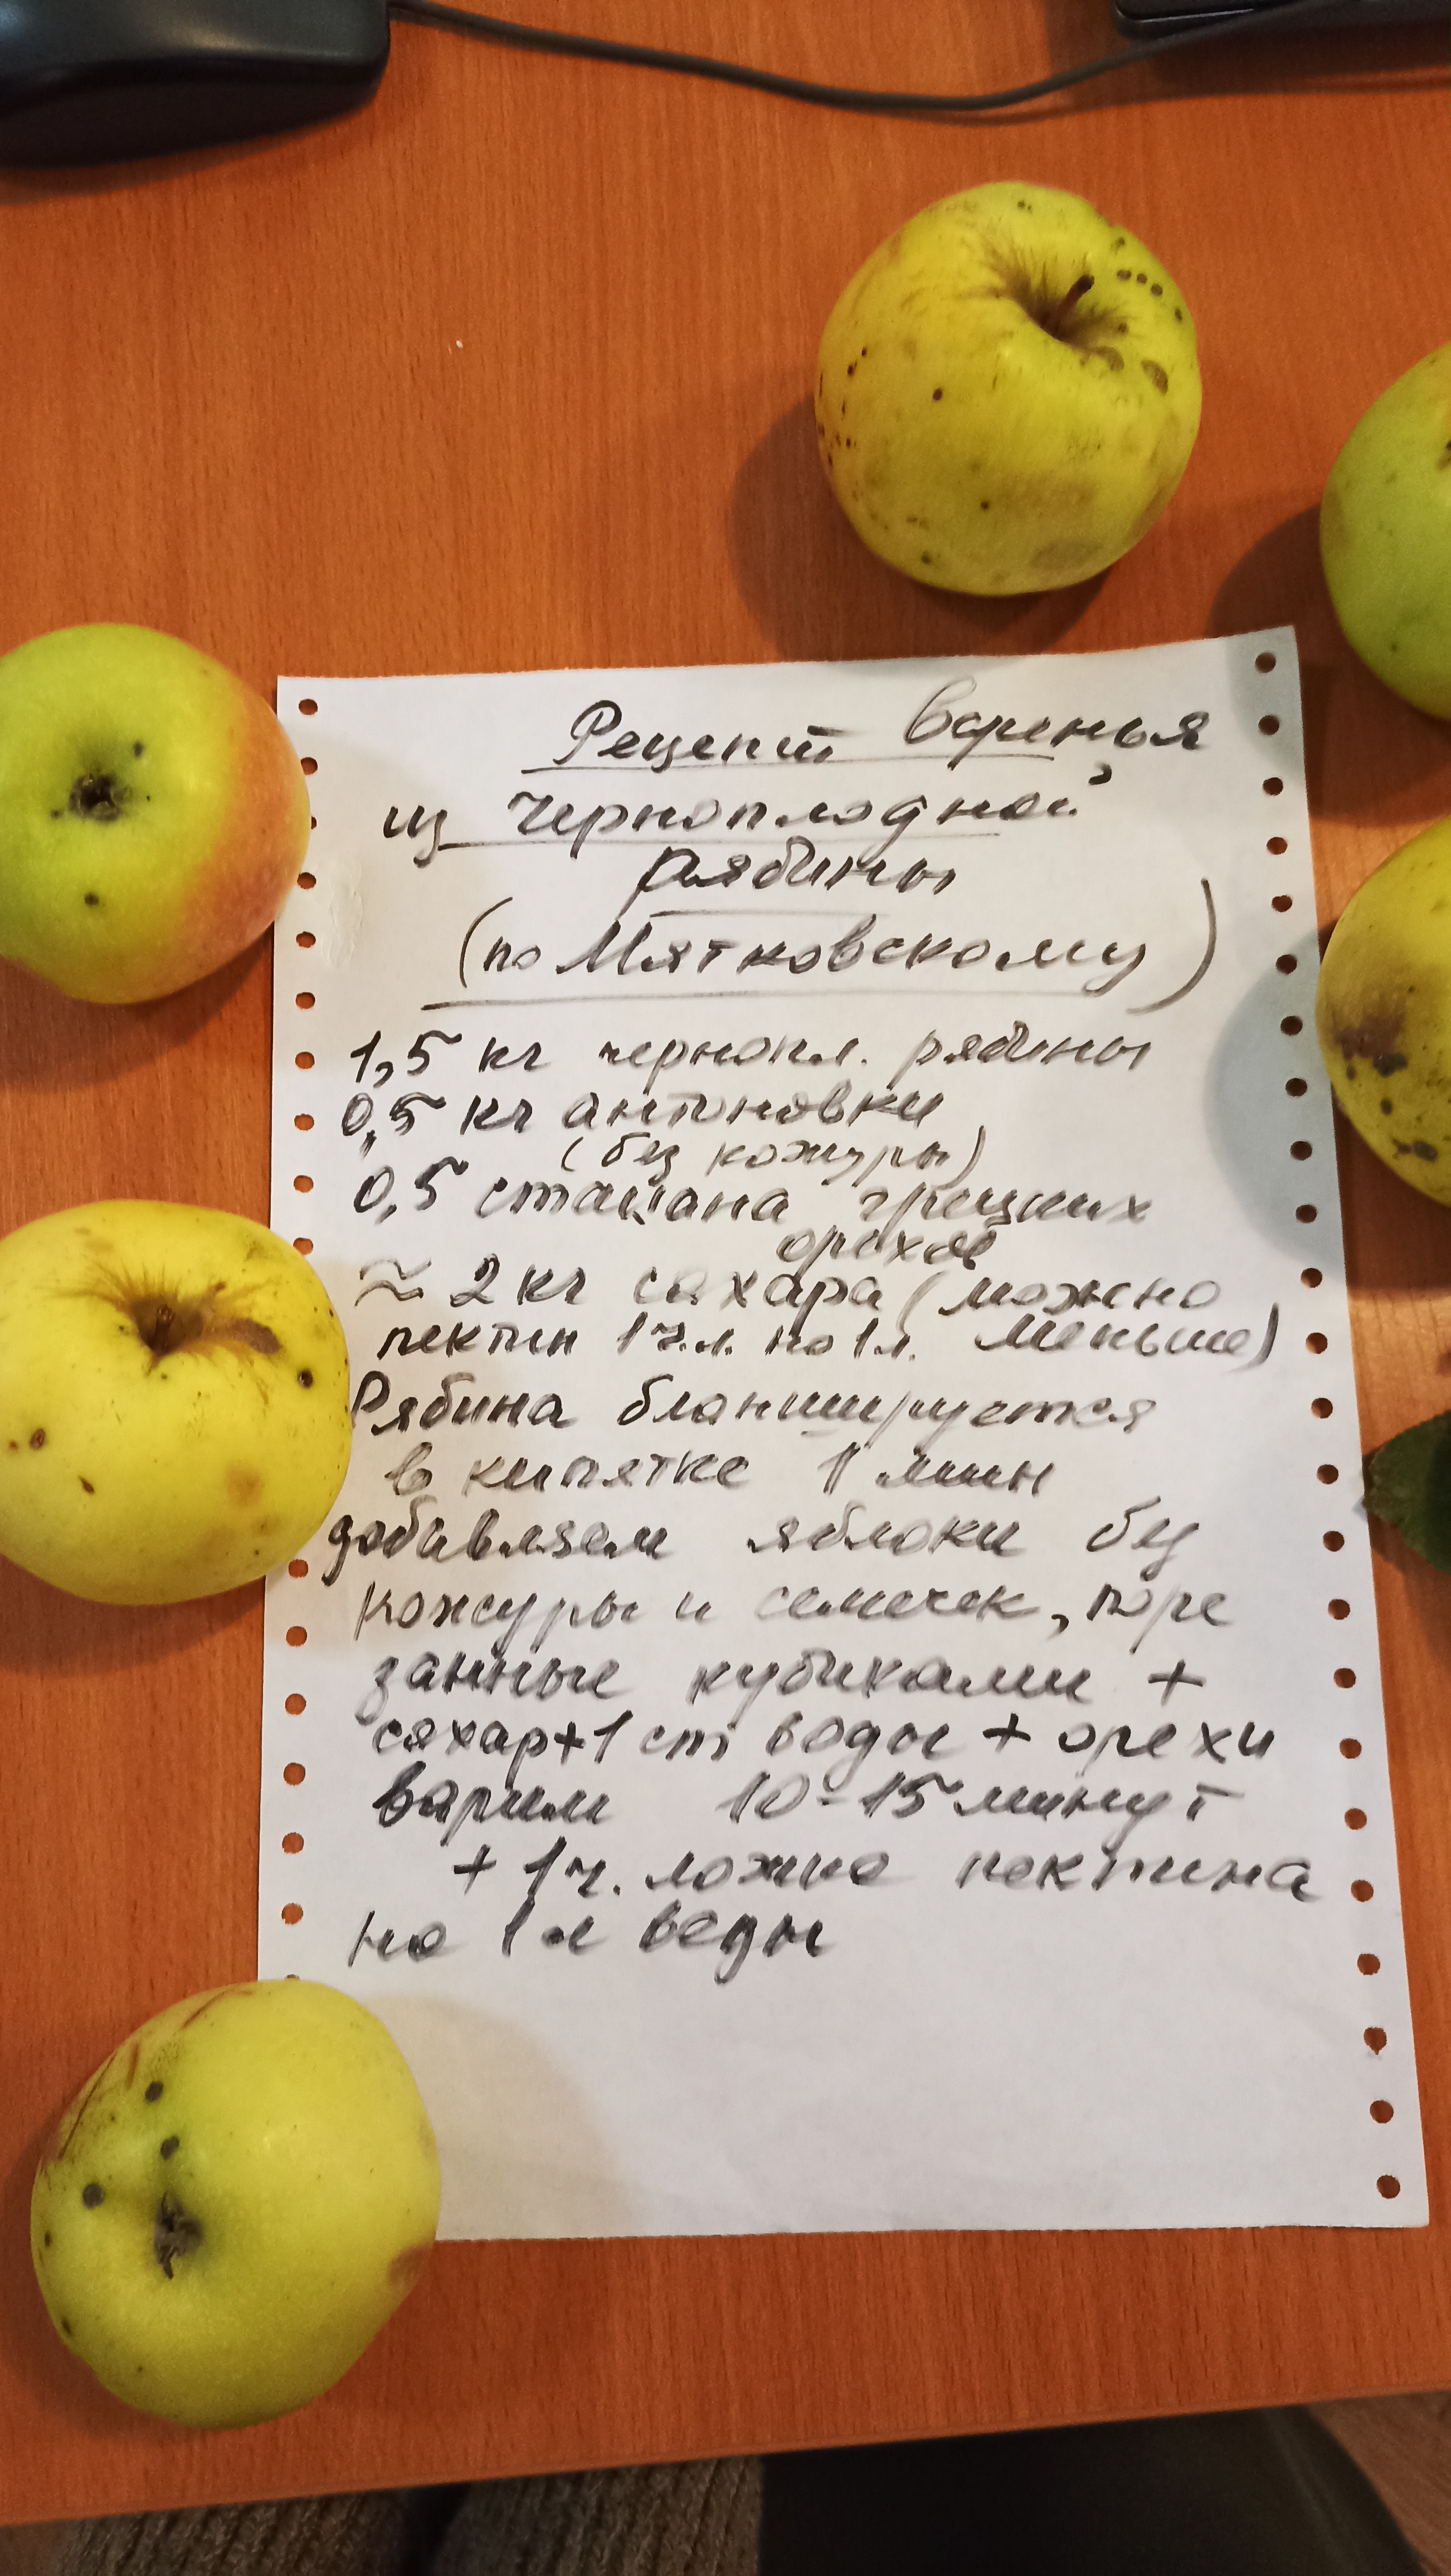 Рецепт варенья
из черноплодной
рябины
(по Мятковскому)
1,5 кг чернопл. рябины
0,5 кг антоновки
(без кожуры)
0,5 стакана грецких
орехов
≈ 2 кг сахара (можно
пектин 1 ч.л. на 1 л. меньше)
Рябина бланшируется
в кипятке 1 мин
добавляем яблоки без
кожуры и семечек, поре
занные кубиками +
сахар + 1 ст воды + орехи
варим 10-15 минут
+ 1 ч. ложка пектина
на 1 л воды